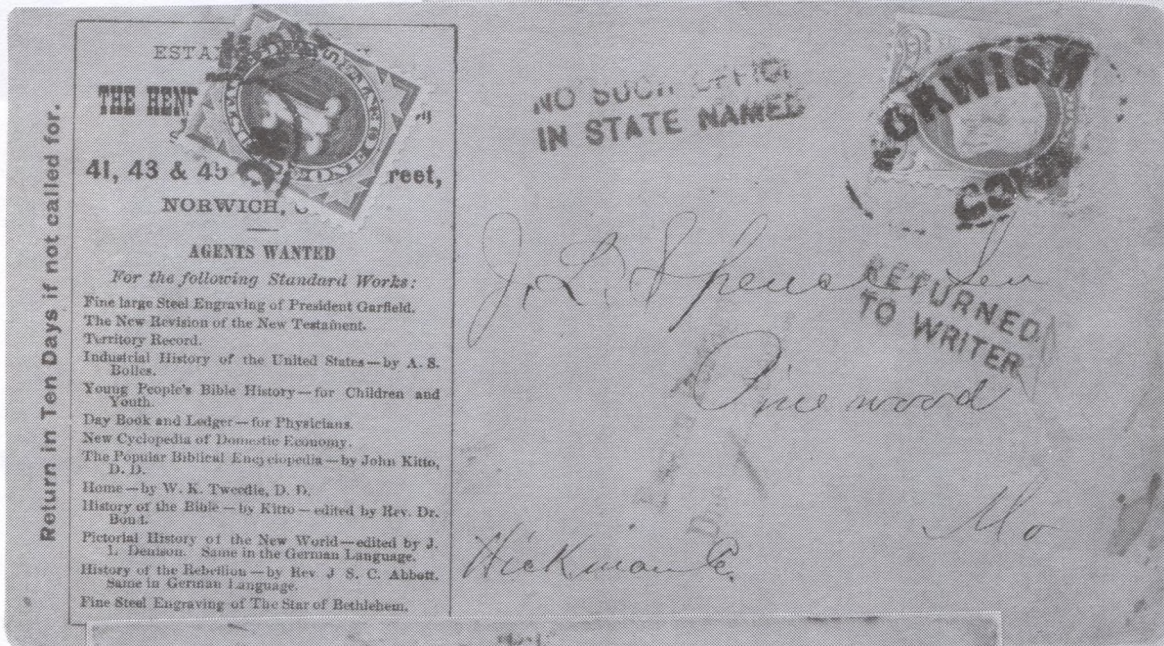 Return in Ten Days if not called for.
ESTA
THE HEN
41, 43 & 45 reet,
NORWICH, C
AGENTS WANTED
For the following Standard Works:
Fine large Steel Engraving of President Garfield.
The New Revision of the New Testament.
Territory Record.
Industrial History of the United States—by A. S.
Bolles.
Young People's Bible History—for Children and
Youth.
Day Book and Ledger—for Physicians.
New Cyclopedia of Domestic Economy.
The Popular Biblical Encyclopedia—by John Kitto,
D. D.
Home—by W. K. Tweedie, D. D.
History of the Bible—by Kitto—edited by Rev. Dr.
Bond.
Pictorial History of the New World—edited by J.
I. Denison. Same in the German Language.
History of the Rebellion—by Rev. J S. C. Abbott.
Same in German Language.
Fine Steel Engraving of The Star of Bethlehem.
NO SUCH OFFICE
IN STATE NAMED
NORWICH
CONN
J. L. Spence Sen
RETURNED
TO WRITER
Pine wood
Mo
Hickman Co.